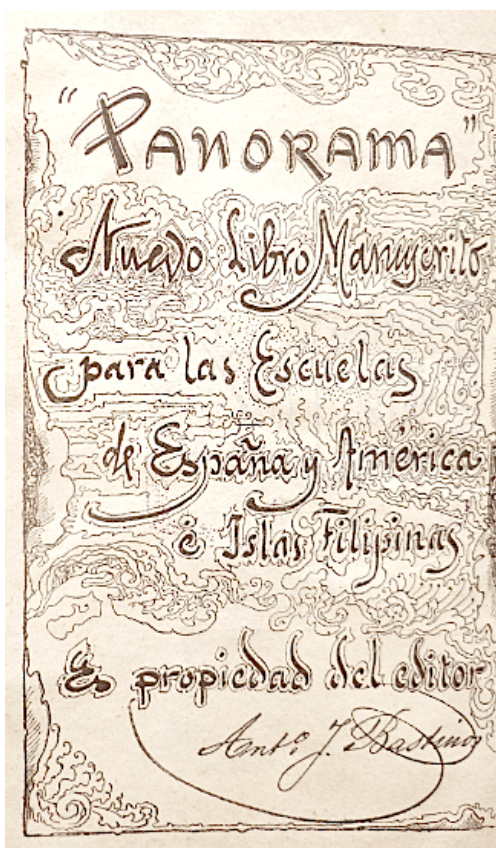 "PANORAMA"
Nuevo Libro Manuscrito
para las Escuelas
de España y América
é Islas Filipinas
Es propiedad del editor
Antº. J. Bastinos